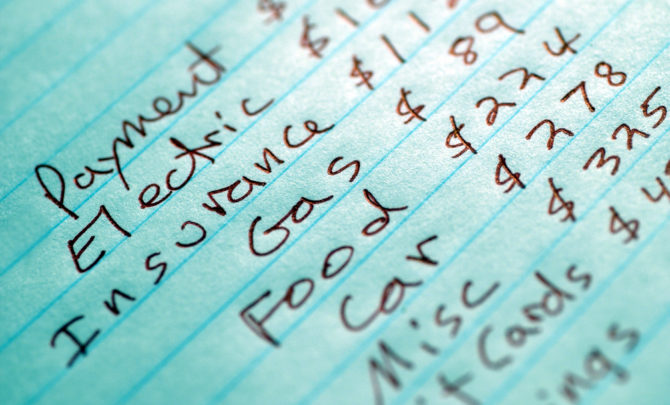 Payment $
Electric $1
Insurance $11
Gas $89
Food $224
Car $278
Misc $325
Cards $4
ings